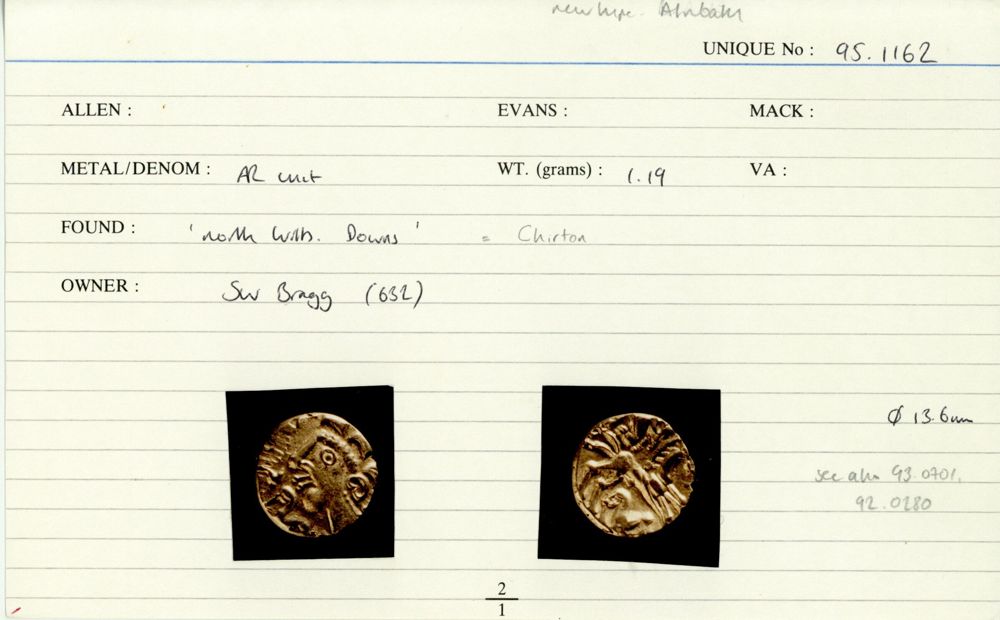 new type.
UNIQUE No : 95.1162
ALLEN : EVANS : MACK :
METAL/DENOM : AR unit WT. (grams) : 1.19 VA :
FOUND : 'north Wilts. Downs' = Chirton
OWNER : Bragg (632)
φ 13.6mm
see also 93.0701,
92.0280
2
1